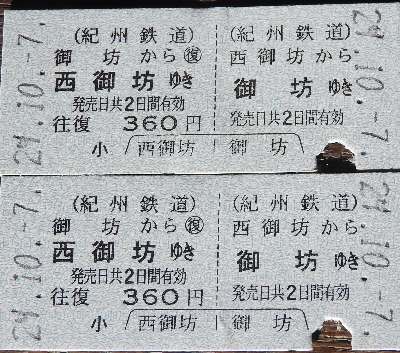 24.10.-7.
(紀州鉄道)
御坊から㊷
西御坊ゆき
発売日共2日間有効
往復 360円
小 西御坊
(紀州鉄道)
西御坊から
御坊ゆき
発売日共2日間有効
御坊
24.10.-7.
24.10.-7.
(紀州鉄道)
御坊から復
西御坊ゆき
発売日共2日間有効
往復 360円
小 西御坊
(紀州鉄道)
西御坊から
御坊ゆき
発売日共2日間有効
御坊
24.10.-7.